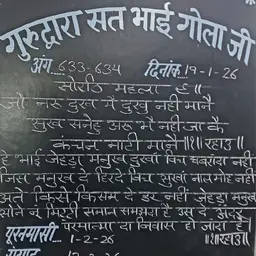 गुरुद्वारा सत भाई गोला जी
अंग 633-634 दिनांक 19-1-26
सोरठि महला ९॥
जो नरु दुख मै दुखु नही मानै
सुख सनेहु अरु भै नही जा कै
कंचन माटी मानै॥१॥रहाउ॥
हे भाई जेहड़ा मनुख दुखां विच घबरांदा नहीं
जिस मनुख दे हिरदे विच सुखां नाल मोह नहीं
अते किसे किसम दे डर नहीं जेहड़ा मनुख
सोने नूं मिट्टी समान समझदा है उस दे अंदर
पूरनमासी परमात्मा दा निवास हो जांदा है
1-2-26 ॥१॥रहाउ॥